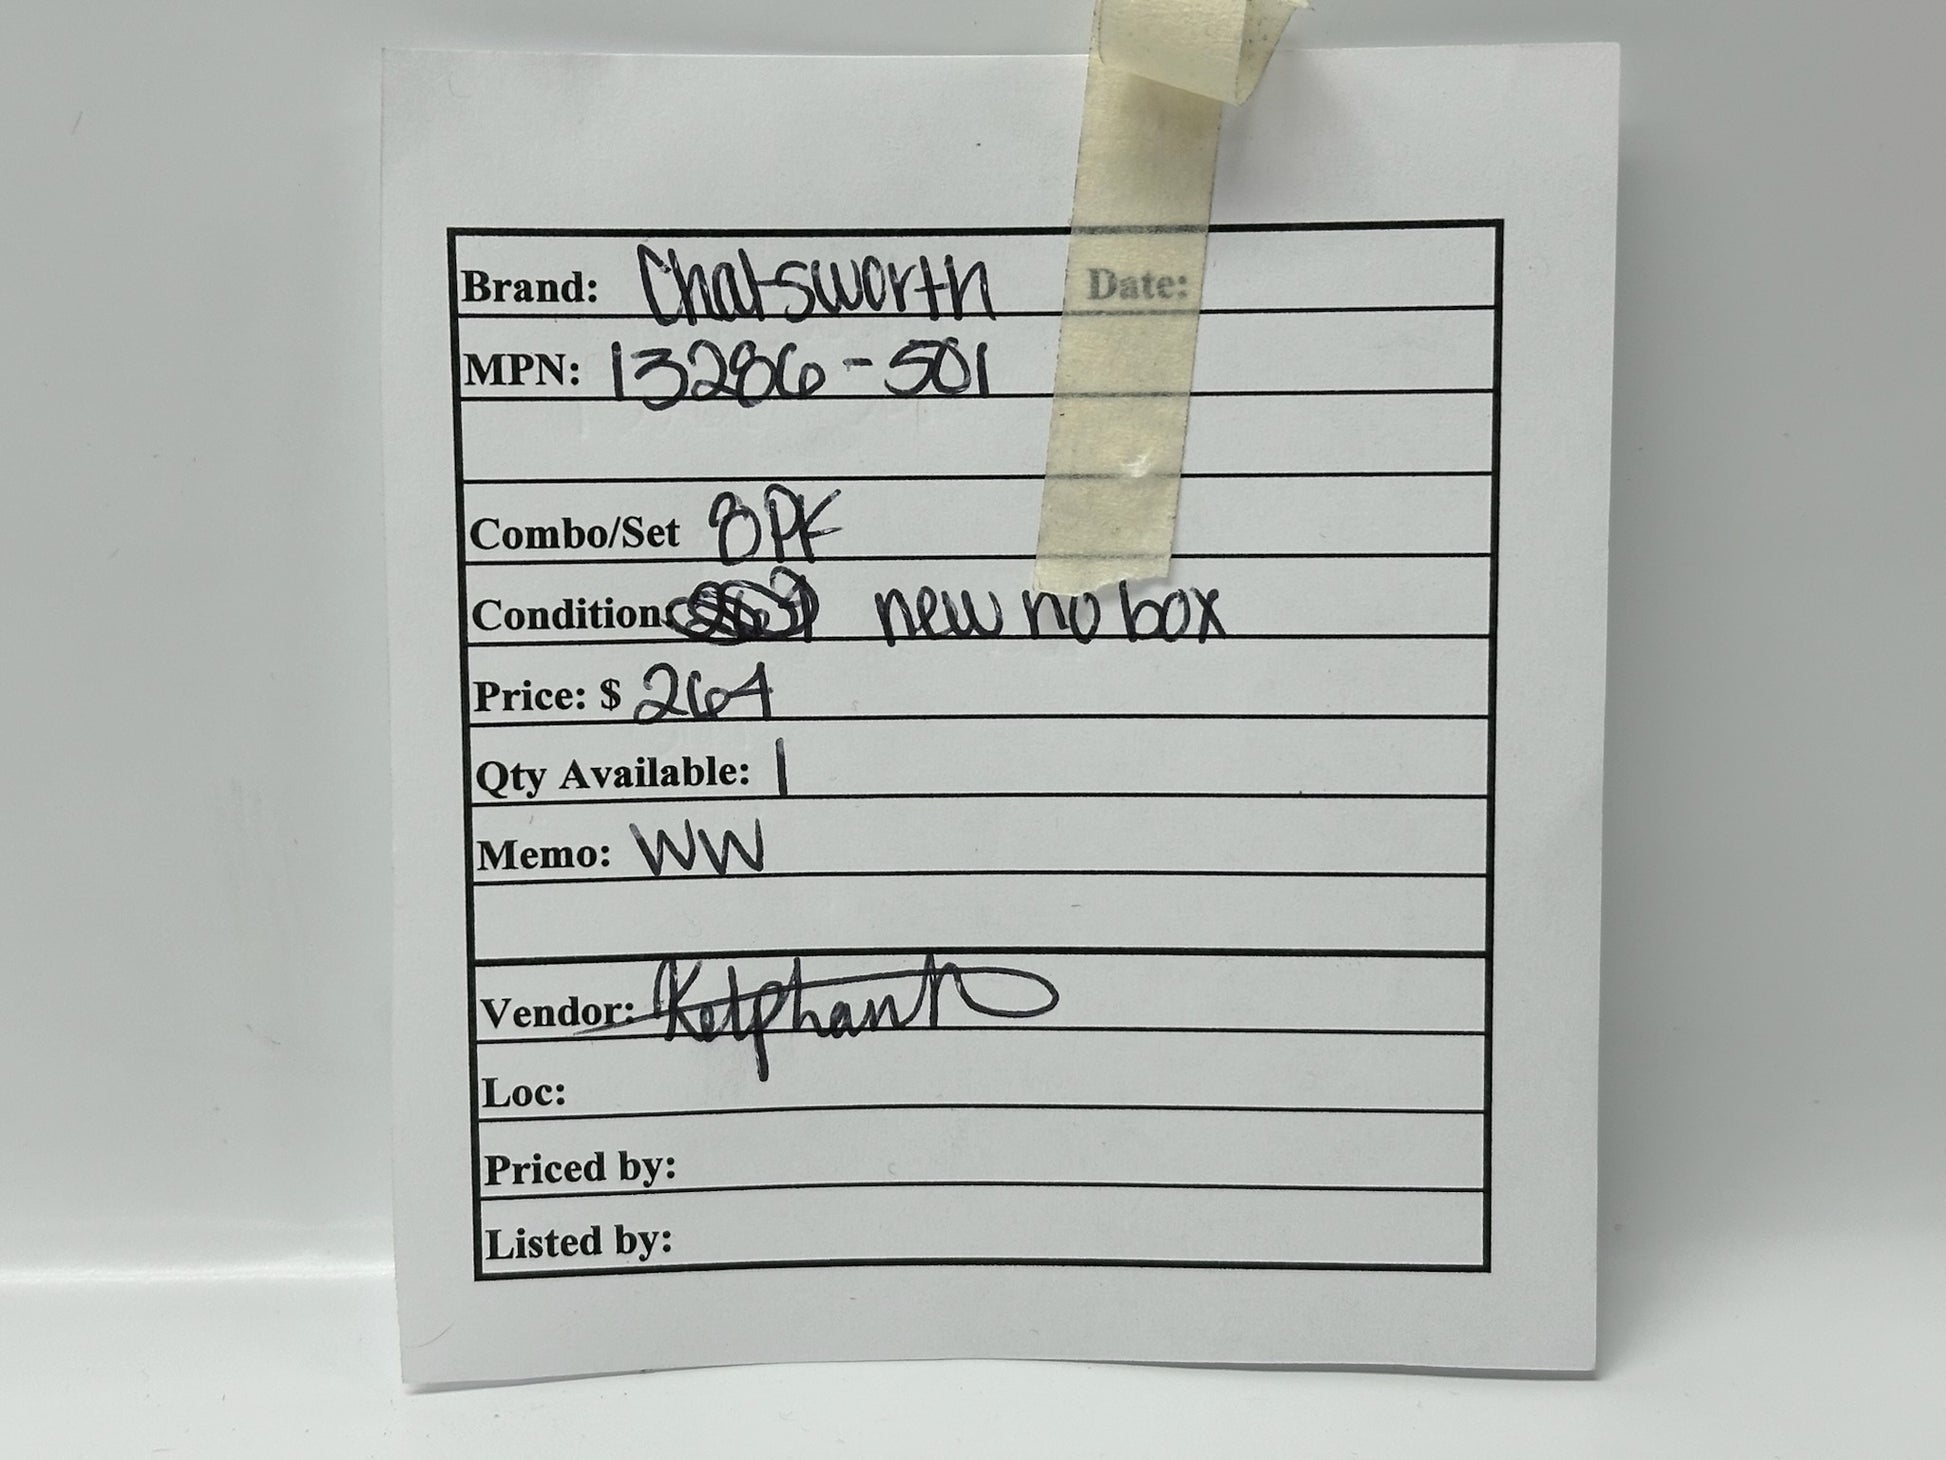 Brand: Chatsworth Date:
MPN: 13286-501
Combo/Set 8PK
Condition: new no box
Price: $ 264
Qty Available: 1
Memo: WW
Vendor:
Loc:
Priced by:
Listed by: